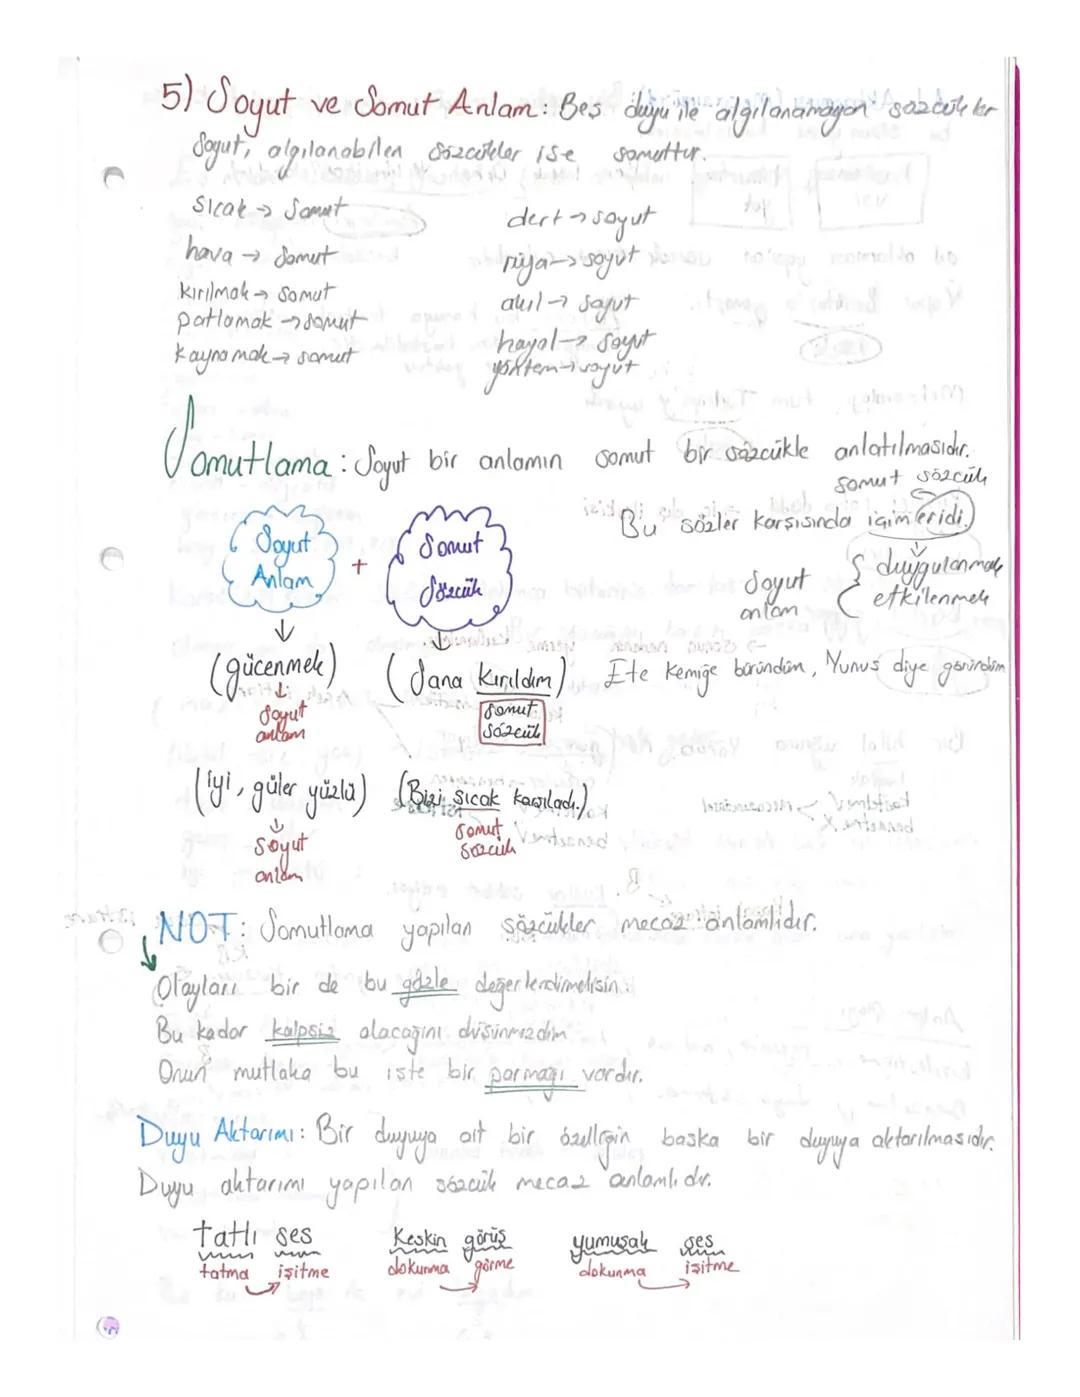 5) Soyut ve Somut Anlam: Beş duyu ile algılanamayan sözcükler
Soyut, algılanabilen sözcükler ise somuttur.
sıcak → somut
dert → soyut
hava → somut
rüya → soyut
kırılmak → somut
akıl → soyut
patlamak → somut
hayal → soyut
kaynamak → somut
yöntem → soyut
Somutlama: Soyut bir anlamın somut bir sözcükle anlatılmasıdır.
somut sözcük
Bu sözler karşısında içim eridi.
Soyut Anlam + Somut Sözcük
Soyut anlam { duygulanmak
etkilenmek
(gücenmek) (Sana kırıldım) Ete kemiğe büründüm, Yunus diye göründüm
soyut anlam
somut sözcük
(iyi, güler yüzlü) (Bizi sıcak karşıladı.)
soyut anlam
somut sözcük
NOT: Somutlama yapılan sözcükler mecaz anlamlıdır.
Olayları bir de bu gözle değerlendirmelisin.
Bu kadar kalpsiz olacağını düşünmezdim
Onun mutlaka bu işte bir parmağı vardır.
Duyu Aktarımı: Bir duyuya ait bir özelliğin başka bir duyuya aktarılmasıdır.
Duyu aktarımı yapılan sözcük mecaz anlamlıdır.
tatlı ses keskin görüş yumuşak ses
tatma işitme dokunma görme dokunma işitme